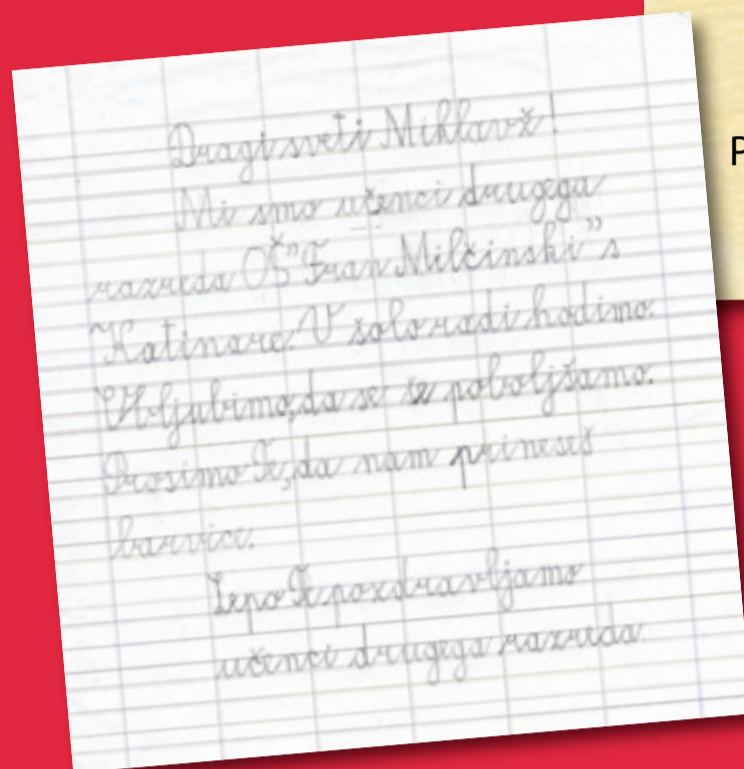 Dragi sveti Miklavž!
Mi smo učenci drugega
razreda OŠ "Fran Milčinski" s
Katinare. V šolo radi hodimo.
Obljubimo, da se še poboljšamo.
Prosimo Te, da nam prineseš
barvice.
Lepo Te pozdravljamo
učenci drugega razreda
P